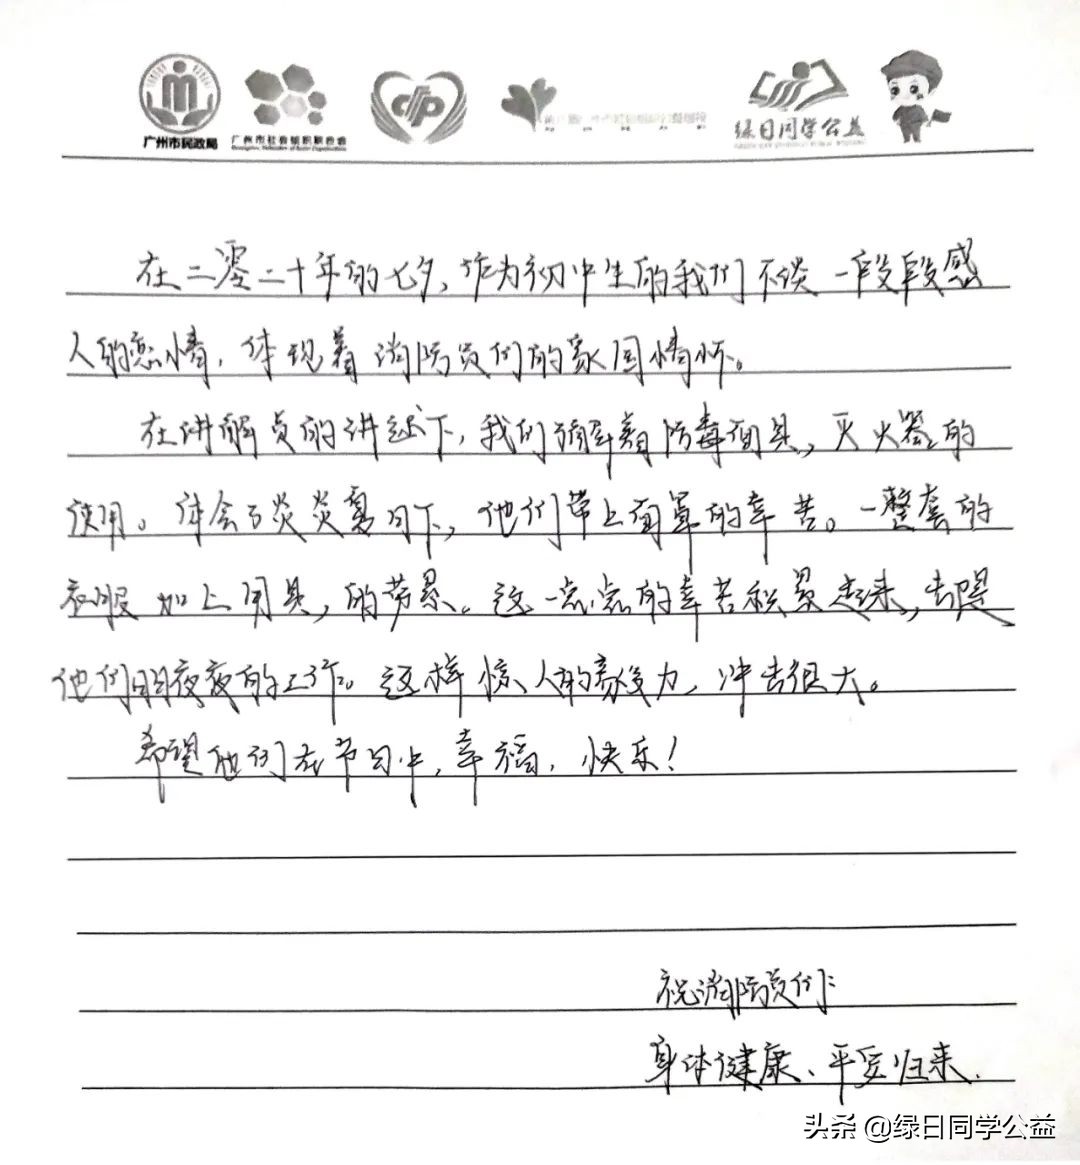 广州市民政局 广州市社会组织联合会 绿日同学公益
在二零二十年的七夕，作为初中生的我们不谈一段段感
人的恋情，体现着消防员们的家国情怀。
在讲解员的讲述下，我们了解着防毒面具，灭火器的
使用。体会了炎炎夏日下，他们带上面罩的幸苦。一整套的
衣服加上用具，的劳累。这一点点的幸苦积累起来，去是
他们日日夜夜的工作。这样惊人的力，冲击很大。
希望他们在节日中，幸福，快乐！
祝消防员们：
身体健康、平安归来.
头条 @绿日同学公益